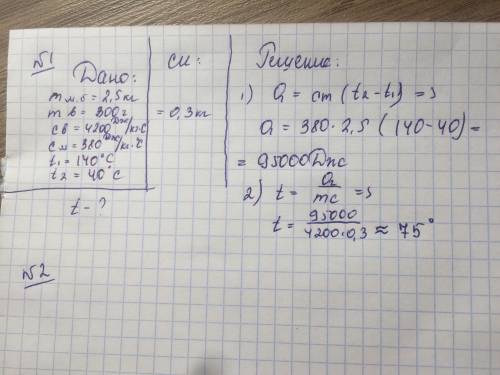 №1
Дано:
m м.б = 2,5 кг
m в = 300 г
cв = 4200 Дж/кг·C
cм = 380 Дж/кг·°C
t₁ = 140°C
t₂ = 40°C
t - ?
СИ:
= 0,3 кг
Решение:
1) Q = cm (t₂ - t₁) =>
Q = 380 · 2,5 (140 - 40) =
= 95000 Дж
2) t = Q/mc =>
t = 95000/4200·0,3 ≈ 75°
№2